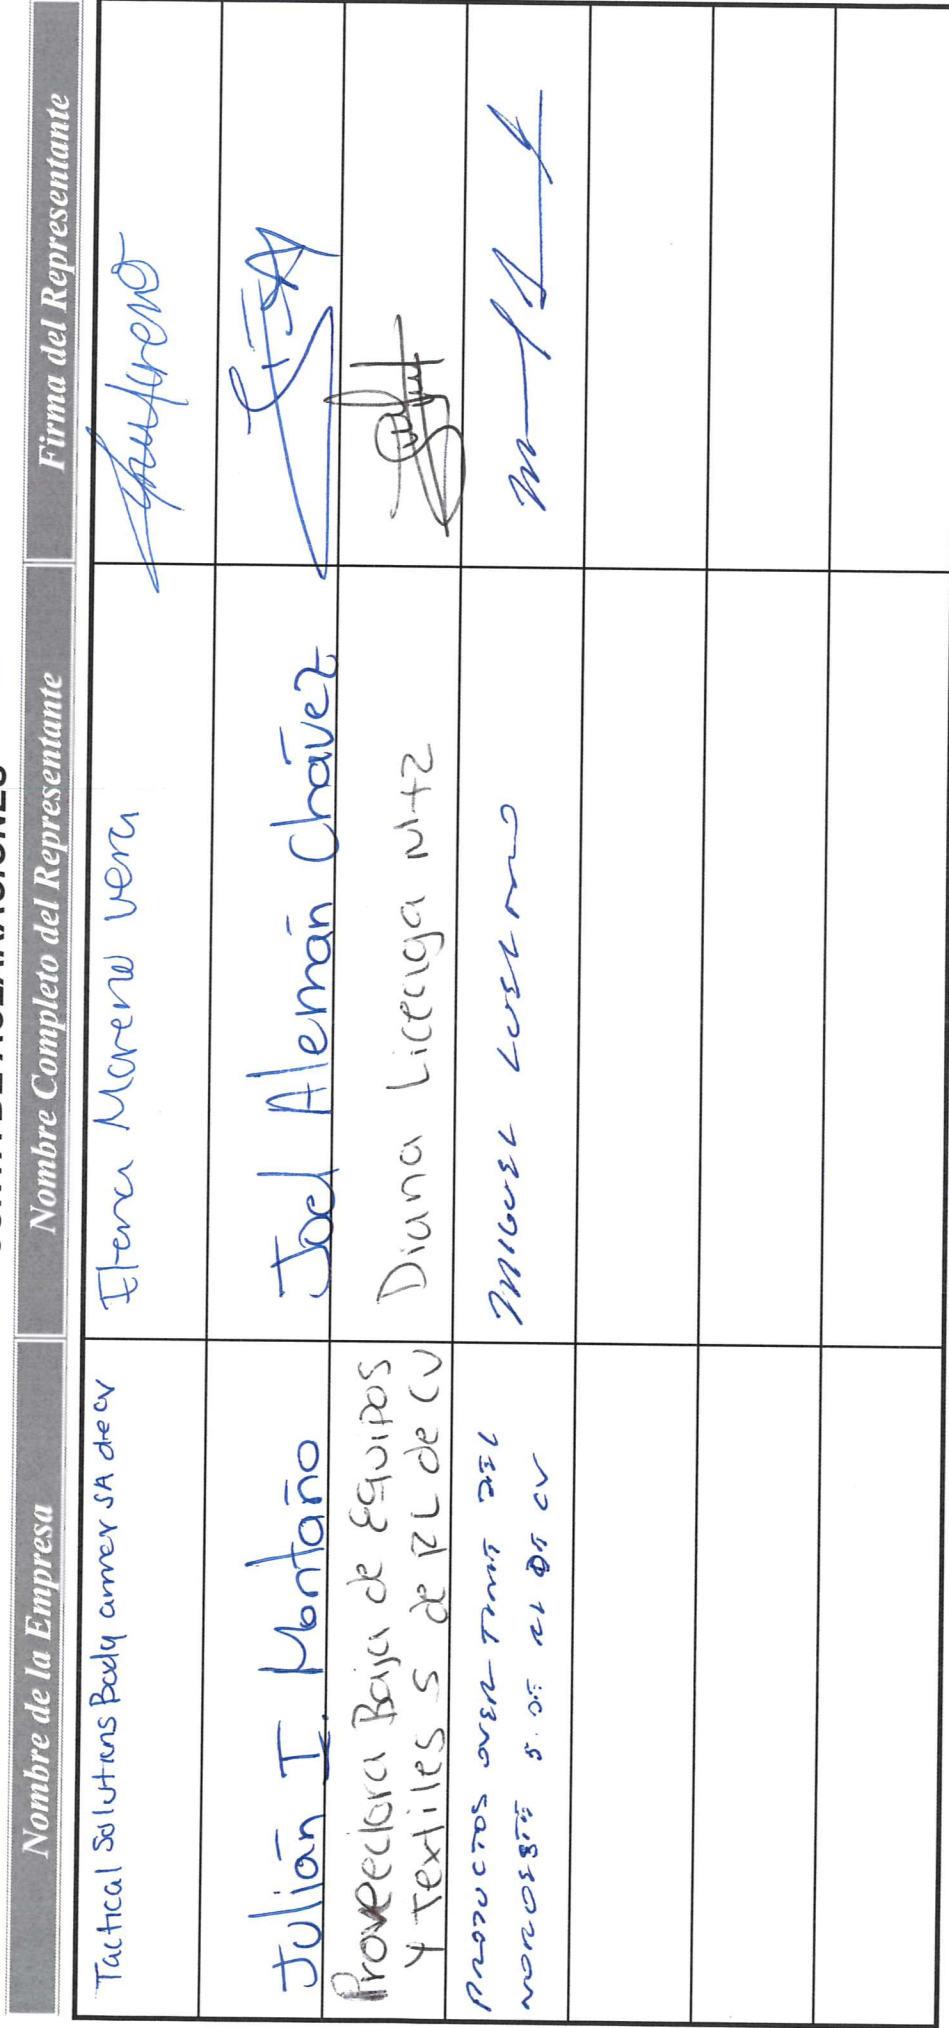 Nombre de la Empresa Nombre Completo del Representante Firma del Representante
Tactical Solutions Body armor SA de cv Elena Moreno vera
Julián I. Montaño Joel Alemán Chávez
Proveedora Baja de Equipos
y Textiles S de RL de CV Diana Liceaga Mtz
PRODUCTOS OVER TIME DEL
NOROESTE S. DE RL DE CV MIGUEL